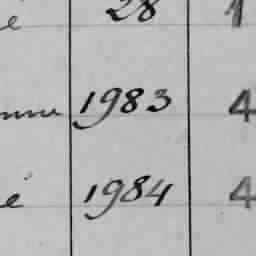 é 28 1
1983 4
é 1984 4